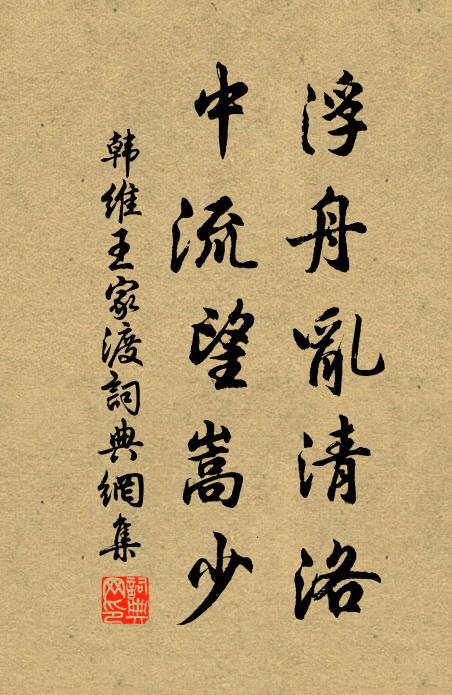 浮舟亂清洛
中流望嵩少
韩維王家渡詞典網集
詞典网印